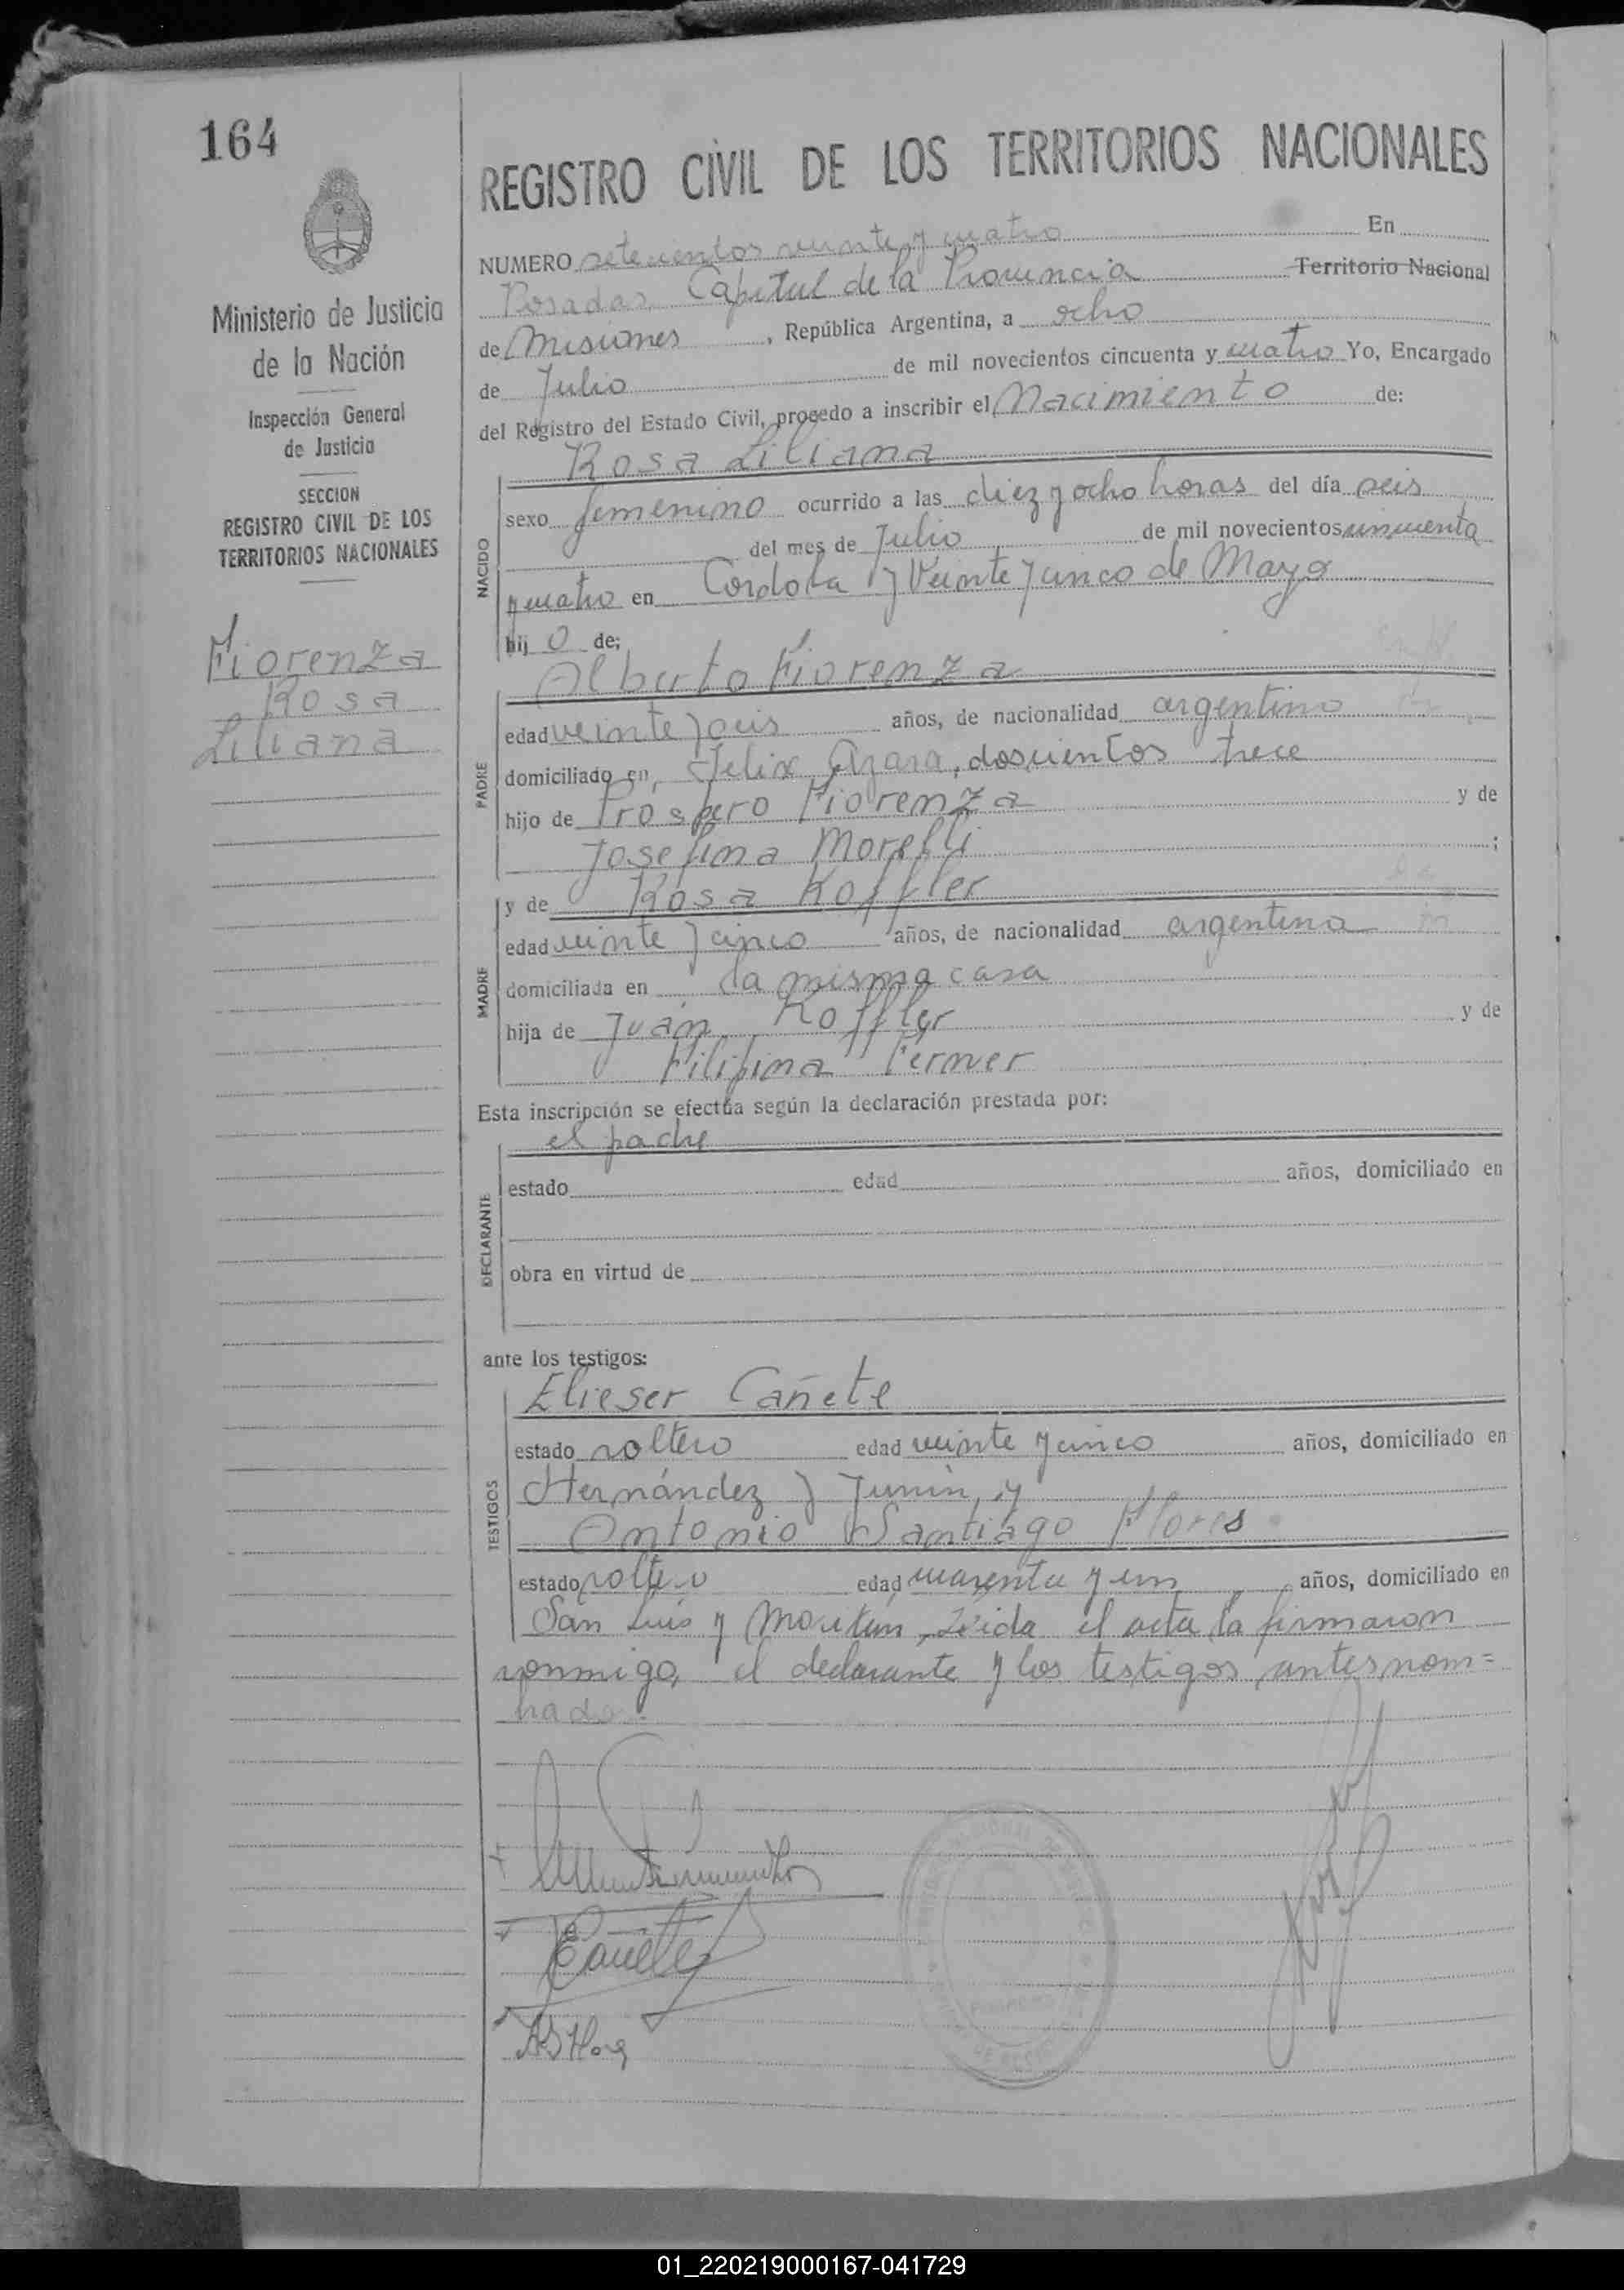 164
REGISTRO CIVIL DE LOS TERRITORIOS NACIONALES
Ministerio de Justicia
de la Nación
Inspección General
de Justicia
SECCION
REGISTRO CIVIL DE LOS
TERRITORIOS NACIONALES
Fiorenza
Rosa
Liliana
NUMERO setecientos veinte y cuatro En
Posadas, Capital de la Provincia Territorio Nacional
de Misiones, República Argentina, a ocho
de Julio de mil novecientos cincuenta y cuatro Yo, Encargado
del Registro del Estado Civil, procedo a inscribir el Nacimiento de:
NACIDO
Rosa Liliana
sexo femenino ocurrido a las diez y ocho horas del día seis
del mes de Julio de mil novecientos cincuenta
y cuatro en Cordoba y Veinte y cinco de Mayo
hij o de;
PADRE
Alberto Fiorenza
edad veinte y seis años, de nacionalidad argentino
domiciliado en, Felix Azara, doscientos trece
hijo de Prospero Fiorenza y de
Josefina Morelli ;
MADRE
y de Rosa Koffler
edad veinte y cinco años, de nacionalidad argentina
domiciliada en la misma casa
hija de Juan Koffler y de
Filipina Perner
Esta inscripción se efectúa según la declaración prestada por:
DECLARANTE
el padre
estado edad años, domiciliado en
obra en virtud de
ante los testigos:
TESTIGOS
Elieser Cañete
estado soltero edad veinte y cinco años, domiciliado en
Hernández y Junín, y
Antonio Santiago Flores
estado soltero edad cuarenta y un años, domiciliado en
San Luis y , Leida el acta la firmaron
conmigo, el declarante y los testigos antes nom=
brados.
Cañete
AS Flores
01_220219000167-041729